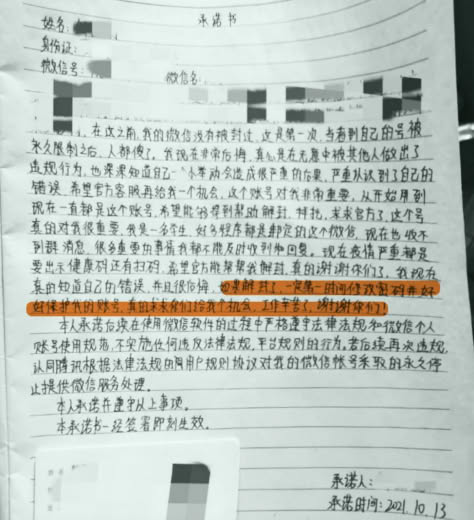 承诺书
姓名:
身份证:
微信号: 微信名:
在这之前,我的微信没有被封过,这是第一次,当看到自己的号被
永久限制之后,人都傻了。我现在非常后悔,真心是在无意中被其他人做出了
违规行为,也深深知道自己一个小举动会造成很严重的后果,严重认识到了自己的
错误。希望官方客服再给我一个机会,这个账号对我非常重要,从开始用到
现在一直都是这个账号,希望能够得到帮助解封,拜托,求求官方了,这个号
真的对我很重要,我是一名学生,好多程序都是绑定的这个微信,现在也收不
到群消息,很多重要的事情我都不能及时收到和回复。现在疫情严重都是
要出示健康码还有扫码,希望官方能帮帮我解封,真的谢谢你们了,我现在
真的知道自己的错误,并且很后悔,如果解封了,一定第一时间修改密码并好
好保护我的账号,真的求求你们给我个机会,工作辛苦了,谢谢谢你们!
本人承诺后续在使用微信软件的过程中严格遵守法律法规和微信个人
账号使用规范,不实施任何违反法律法规,平台规则的行为,若后续再次违规,
认同腾讯根据法律法规的网用户规则协议对我的微信帐号采取的永久停
止提供微信服务处理。
本人承诺并遵守以上事项。
本承诺书一经签署即刻生效。
承诺人:
承诺时间:2021.10.13